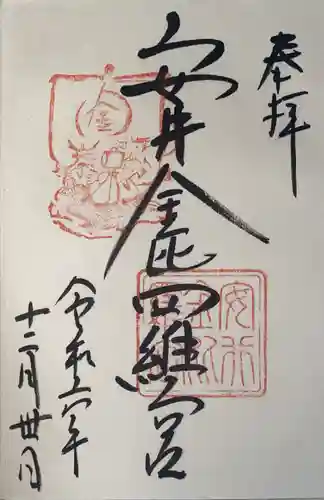 奉拝
安井金毘羅宮
令和六年
十二月卅日